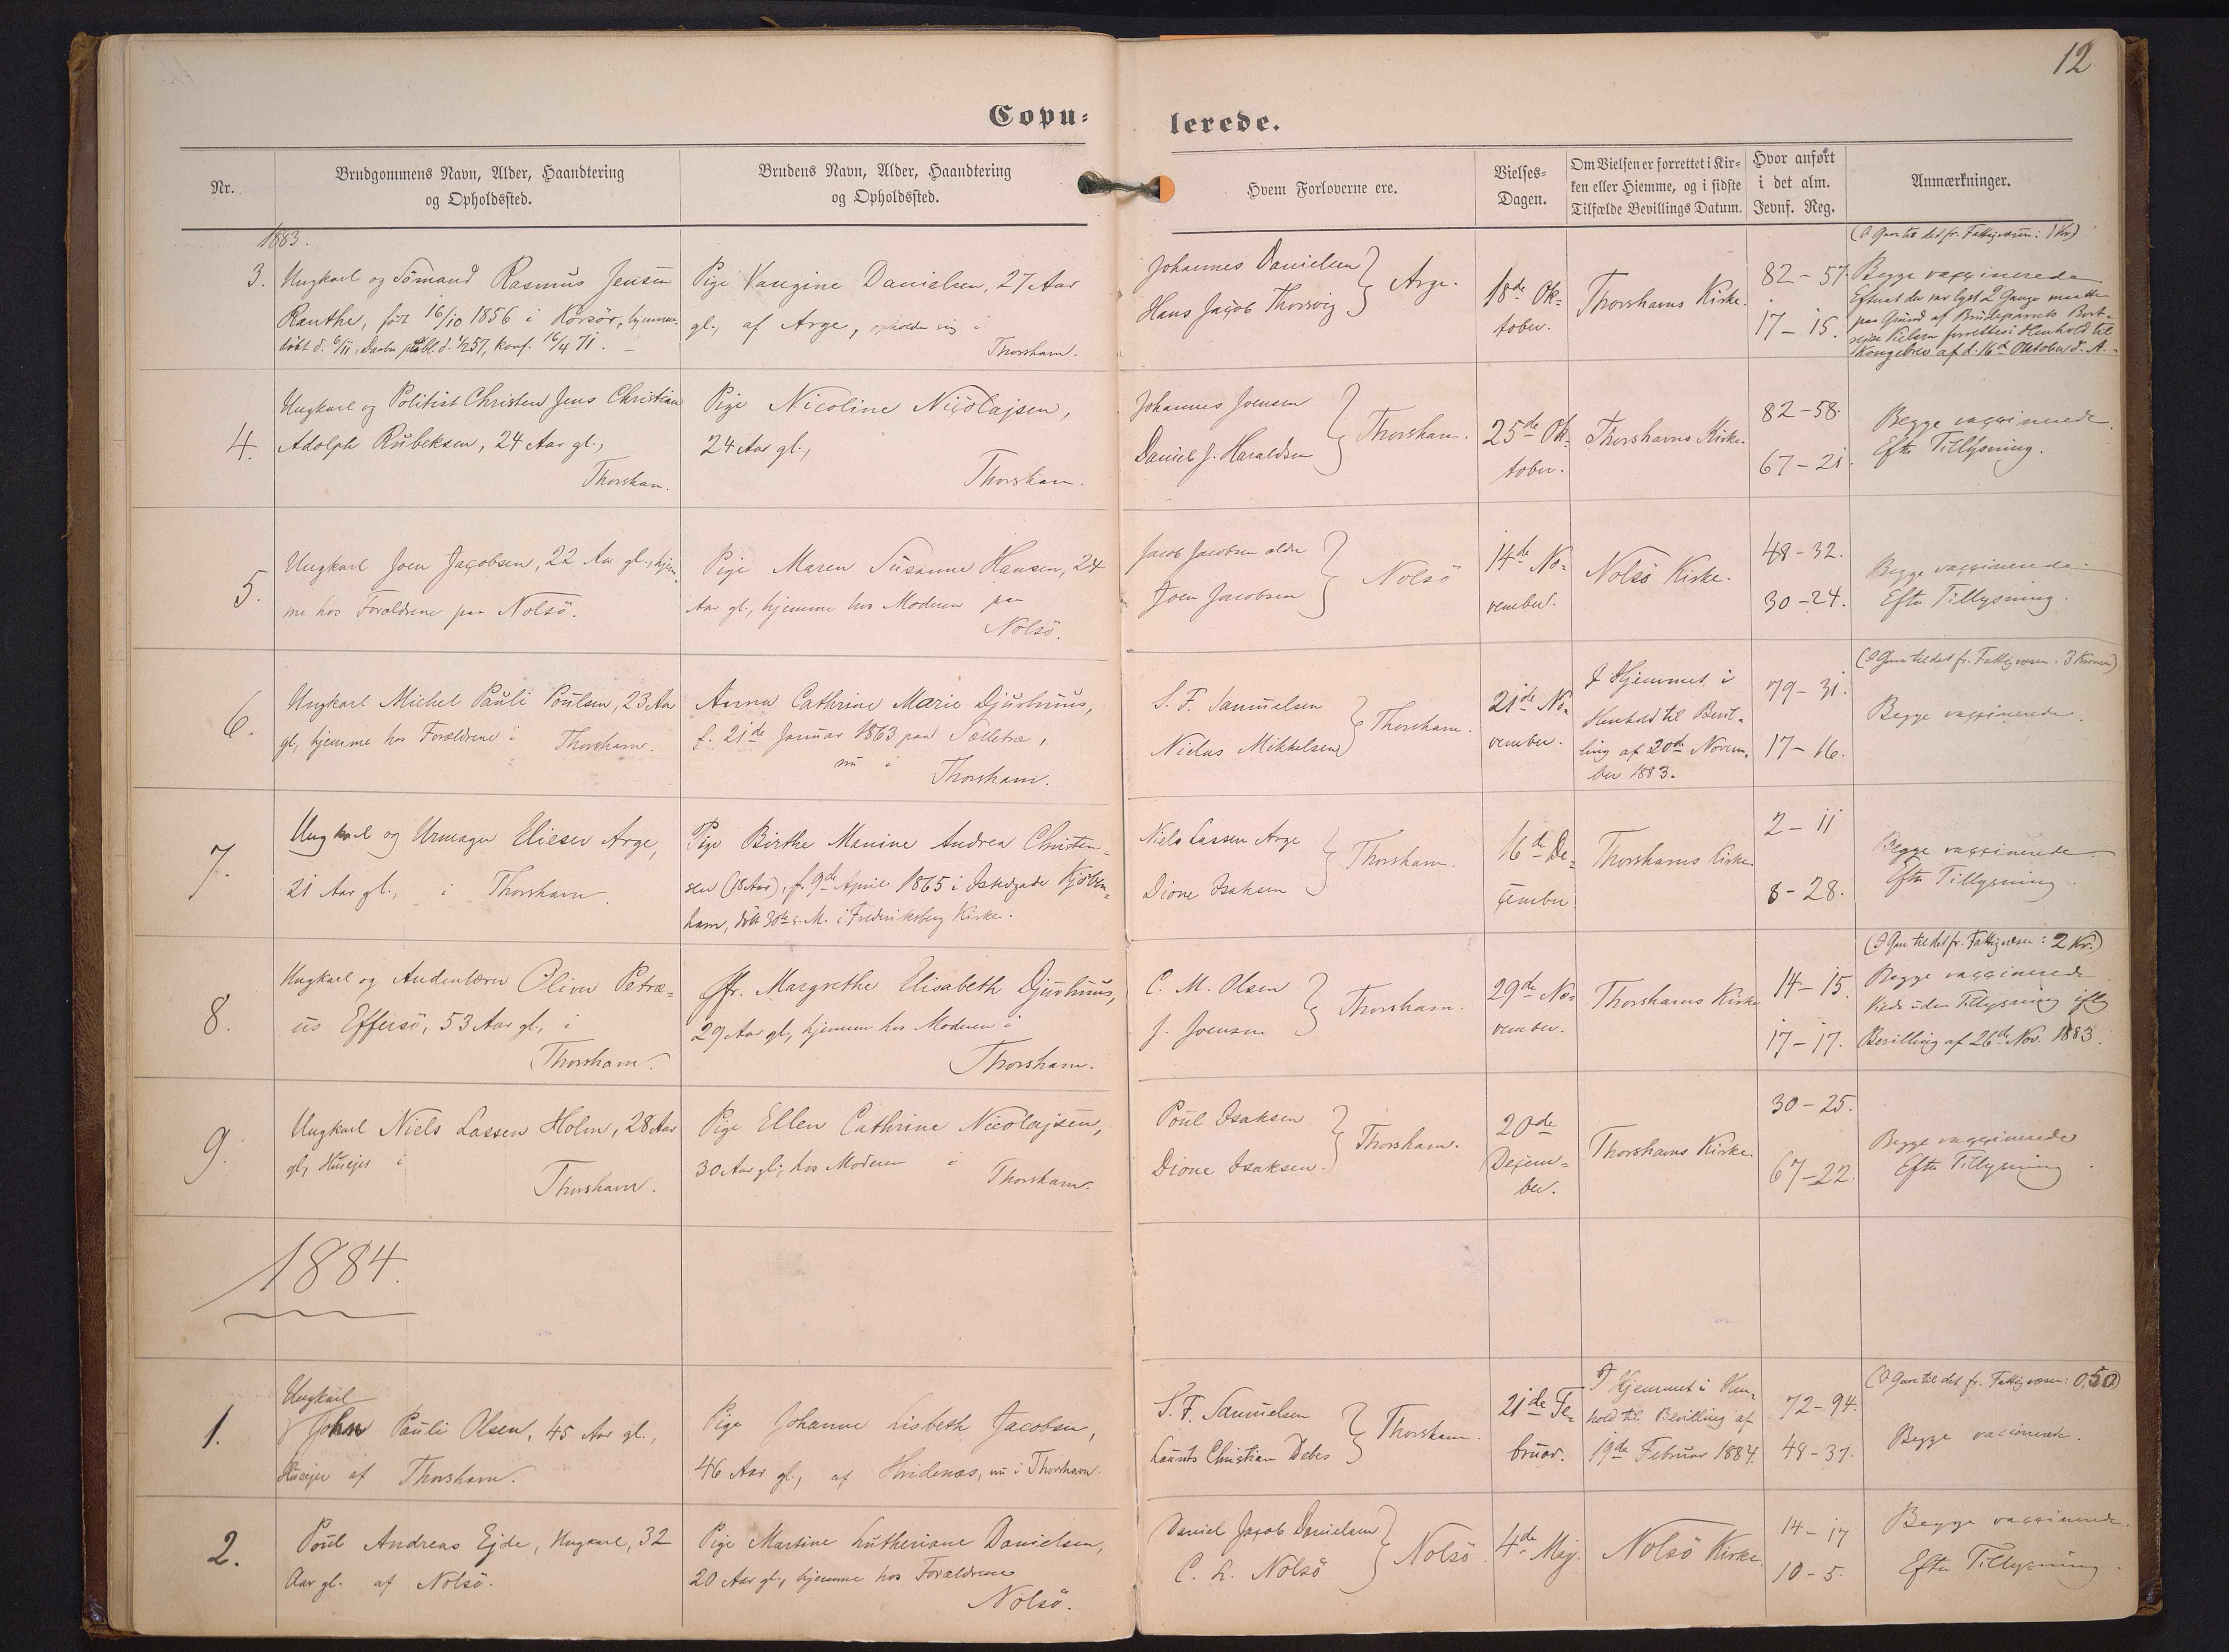 12
Copu=
lerede.
Nr.
Brudgommens Navn, Alder, Haandtering
og Opholdssted.
Brudens Navn, Alder, Haandtering
og Opholdssted.
Hvem Forloverne ere.
Vielses-
Dagen.
Om Vielsen er forrettet i Kir-
ken eller Hiemme, og i sidste
Tilfælde Bevillings Datum.
Hvor anført
i det alm.
Jevnf. Reg.
Anmærkninger.
1883.
3.
Ungkarl og Sömand Rasmus Jensen
Ranthe, föst 16/10 1856 i Korsör, hjemme-
döbt d. 6/11, Daaben publ. d. 1/2 57, konf. 16/4 71.
Pige Vangine Danielsen, 27 Aar
gl., af Arge, opholder sig i
Thorshavn.
Johannes Danielsen
Hans Jaçob Thorsvig
Arge.
18de Ok-
tober.
Thorshavns Kirke.
82-57.
17-15.
(O Gave til det fr. Fattigvæsen: 1 Kr)
Begge vaççinerede
Efterat der var lyst 2 Gange maatte
paa Grund af Brudeparrets Bort-
rejse Vielsen forrettes i Henhold til
Kongebrev af d. 16de Oktober d. A.
4.
Ungkarl og Politist Christen Jens Christian
Adolph Rubeksen, 24 Aar gl.,
Thorshavn.
Pige Nicoline Nicolajsen,
24 Aar gl.,
Thorshavn.
Johannes Joensen
Daniel J. Haraldsen
Thorshavn.
25de Ok-
tober.
Thorshavns Kirke.
82-58.
67-21.
Begge vaççinerede.
Efter Tillysning.
5.
Ungkarl Joen Jaçobsen, 22 Aar gl., hjem-
me hos Forældrene paa Nolsö.
Pige Maren Susanne Hansen, 24
Aar gl., hjemme hos Moderen paa
Nolsö.
Jacob Jacobsen ældre
Joen Jacobsen
Nolsö
14de No-
vember.
Nolsö Kirke.
48-32.
30-24.
Begge vaççinerede.
Efter Tillysning.
6.
Ungkarl Michel Pauli Poulsen, 23 Aar
gl., hjemme hos Forældrene i Thorshavn.
Anna Cathrine Marie Djurhuus,
f. 21de Januar 1863 paa Selletræ,
nu i Thorshavn.
S. F. Samuelsen
Niclas Mikkelsen
Thorshavn.
21de No-
vember.
I Hjemmet i
Henhold til Bevil-
ling af 20de Novem-
ber 1883.
79-31.
17-16.
(O Gave til det fr. Fattigvæsen: 3 Kroner)
Begge vaççinerede.
7.
Ungkarl og Urmager Elieser Arge,
21 Aar gl., i Thorshavn.
Pige Birthe Marine Andrea Christen-
sen (18 Aar), f. 9de April 1865 i Istedgade Kjöben-
havn, döbt 30te s. M. i Frederiksberg Kirke.
Niels Lassen Arge
Dione Isaksen
Thorshavn.
16de De-
çember.
Thorshavns Kirke.
2-11
8-28.
Begge vaççinerede.
Efter Tillysning.
8.
Ungkarl og Andenlærer Oliver Petræ-
us Effersö, 53 Aar gl., i
Thorshavn.
Jfr. Margrethe Elisabeth Djurhuus,
29 Aar gl., hjemme hos Moderen i
Thorshavn.
C. M. Olsen
J. Joensen
Thorshavn.
29de No-
vember.
Thorshavns Kirke
14-15.
17-17.
(O Gave til det fr. Fattigvæsen: 2 Kr.)
Begge vaççinerede
Viede uden Tillysning eftr
Bevilling af 26de Nov. 1883.
9.
Ungkarl Niels Lassen Holm, 28 Aar
gl., Husejer i
Thorshavn.
Pige Ellen Cathrine Nicolajsen,
30 Aar gl., hos Moderen i
Thorshavn.
Poul Isaksen
Dione Isaksen.
Thorshavn.
20de
Deçem-
ber.
Thorshavns Kirke.
30-25.
67-22.
Begge vaççinerede
Efter Tillysning.
1884.
1.
Ungkarl
John Pauli Olsen, 45 Aar gl.,
Husejer af Thorshavn.
Pige Johanne Lisbeth Jacobsen,
46 Aar gl., af Hvidenæs, nu i Thorshavn.
S. F. Samuelsen
Laurits Christian Debes
Thorshavn.
21de Fe-
bruar.
I Hjemmet i Hen-
hold til Bevilling af
19de Februar 1884.
72-94.
48-37.
(O Gave til det fr. Fattigvæsen: 0,50)
Begge vaccinerede.
2.
Poul Andreas Ejde, Ungkarl, 32
Aar gl. af Nolsö.
Pige Martine Lutheriane Danielsen,
20 Aar gl., hjemme hos Forældrene
Nolsö.
Daniel Jaçob Danielsen
C. L. Nolsö
Nolsö.
4de Maj.
Nolsö Kirke.
14-17
10-5.
Begge vaççinerede.
Efter Tillysning.